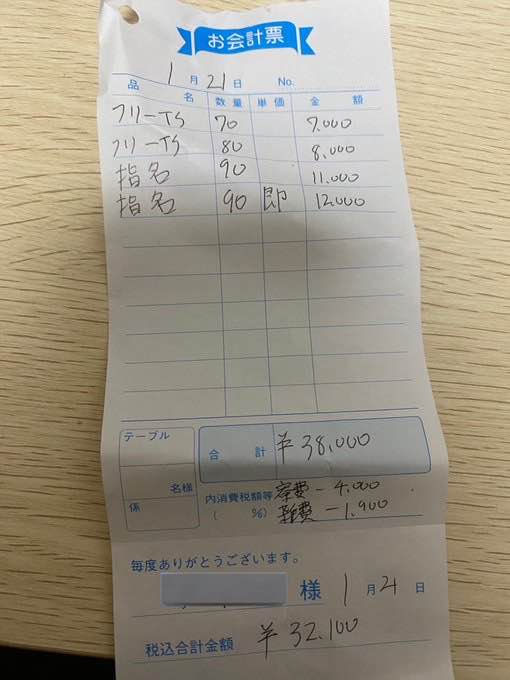 お会計票
1月21日 No.
品名 数量 単価 金額
フリーTS 70 7.000
フリーTS 80 8,000
指名 90 11.000
指名 90 即 12.000
テーブル
合計 ¥38,000
名様
係
内消費税額等
( %)
寮費 -4.000
雑費 -1,900
毎度ありがとうございます。
様 1月21日
税込合計金額 ¥32.100